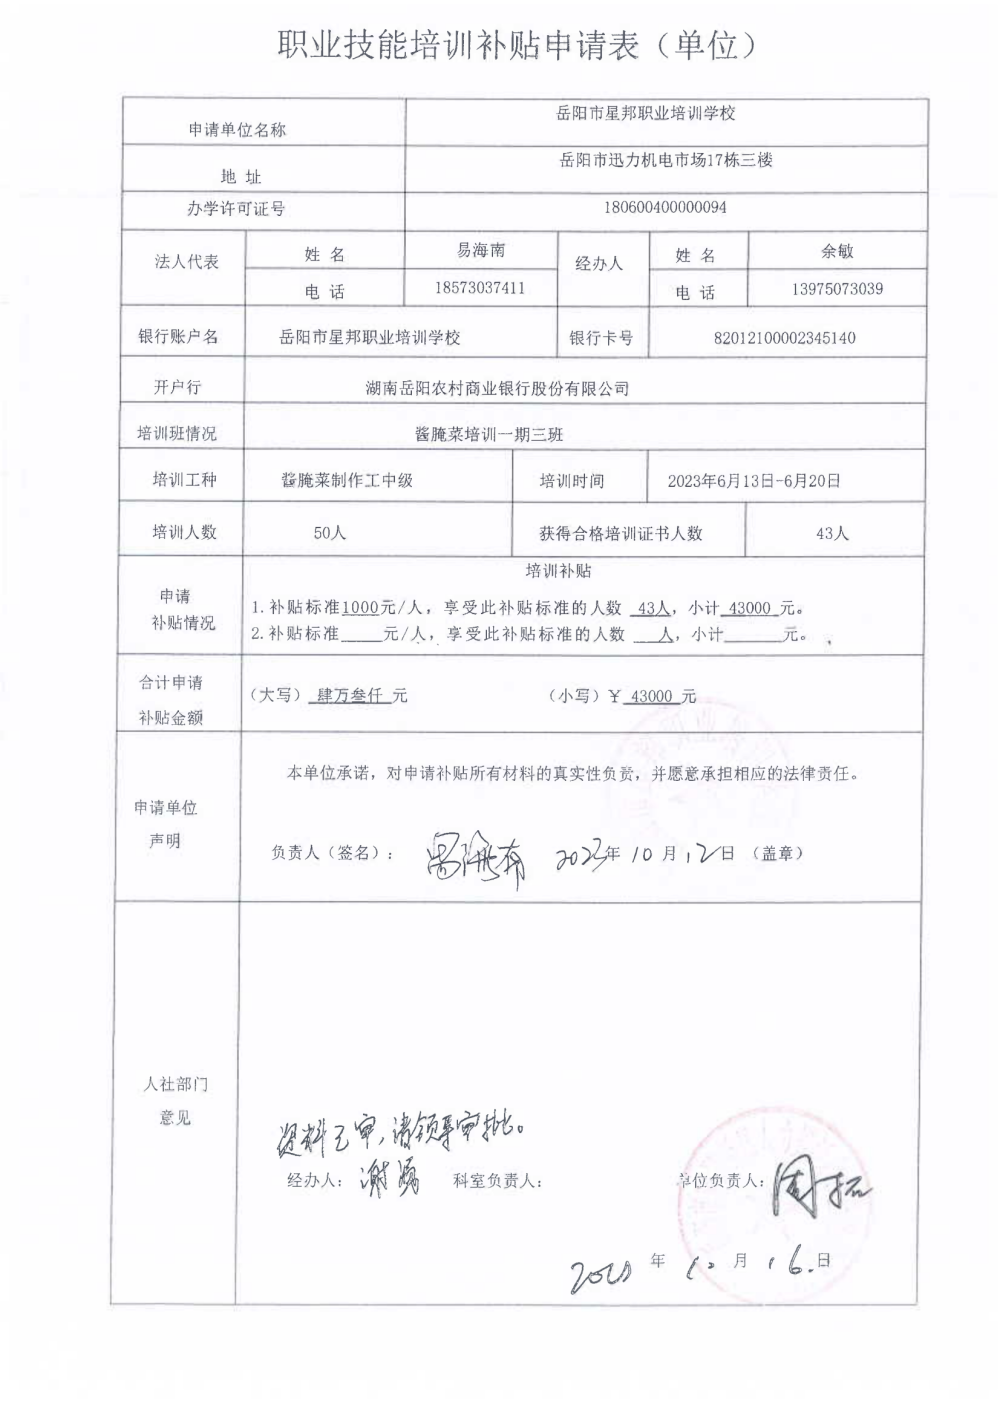 职业技能培训补贴申请表（单位）
申请单位名称 岳阳市星邦职业培训学校
地 址 岳阳市迅力机电市场17栋三楼
办学许可证号 180600400000094
法人代表 姓 名 易海南 经办人 姓 名 余敏
电 话 18573037411 电 话 13975073039
银行账户名 岳阳市星邦职业培训学校 银行卡号 82012100002345140
开户行 湖南岳阳农村商业银行股份有限公司
培训班情况 酱腌菜培训一期三班
培训工种 酱腌菜制作工中级 培训时间 2023年6月13日-6月20日
培训人数 50人 获得合格培训证书人数 43人
申请
补贴情况
培训补贴
1.补贴标准1000元/人，享受此补贴标准的人数 43人，小计 43000 元。
2.补贴标准____元/人，享受此补贴标准的人数 ___人，小计______元。
合计申请
补贴金额
（大写） 肆万叁仟 元 （小写）￥ 43000 元
申请单位
声明
本单位承诺，对申请补贴所有材料的真实性负责，并愿意承担相应的法律责任。
负责人（签名）： 易海南 2023年 10 月 12日 （盖章）
人社部门
意见
资料已审,请领导审批。
经办人： 谢 科室负责人： 单位负责人： 周拓
年 10 月 16 日